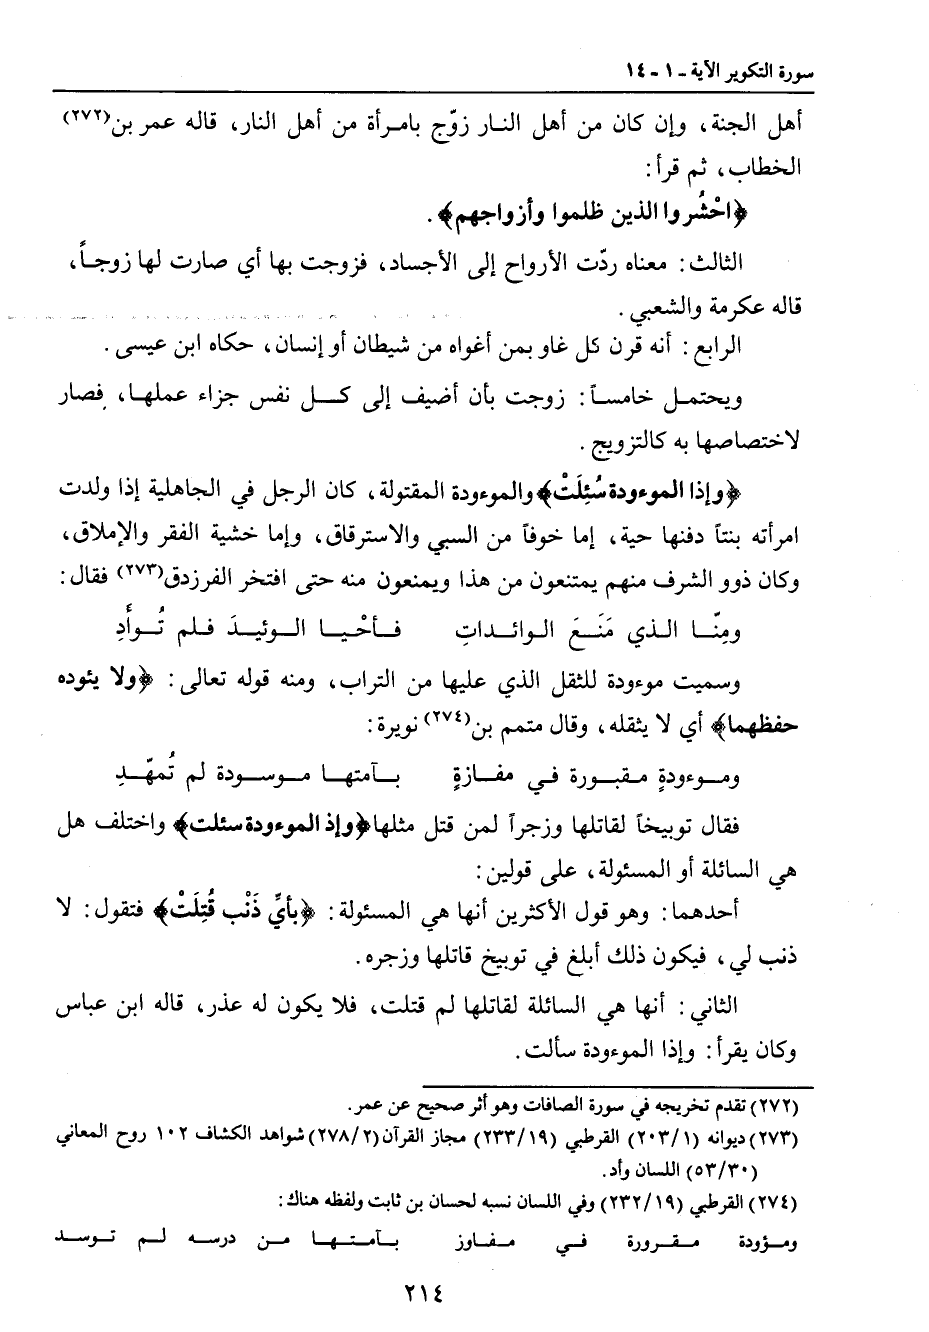 سورة التكوير الآية - ١ - ١٤
أهل الجنة، وإن كان من أهل النار زوّج بامرأة من أهل النار، قاله عمر بن(٢٧٢)
الخطاب، ثم قرأ:
﴿احْشُروا الذين ظلموا وأزواجهم﴾.
الثالث: معناه ردّت الأرواح إلى الأجساد، فزوجت بها أي صارت لها زوجاً،
قاله عكرمة والشعبي.
الرابع: أنه قرن كل غاو بمن أغواه من شيطان أو إنسان، حكاه ابن عيسى.
ويحتمل خامساً: زوجت بأن أضيف إلى كل نفس جزاء عملها، فصار
لاختصاصها به كالتزويج.
﴿وإذا الموءودة سُئِلَتْ﴾ والموءودة المقتولة، كان الرجل في الجاهلية إذا ولدت
امرأته بنتاً دفنها حية، إما خوفاً من السبي والاسترقاق، وإما خشية الفقر والإملاق،
وكان ذوو الشرف منهم يمتنعون من هذا ويمنعون منه حتى افتخر الفرزدق(٢٧٣) فقال:
ومِنّا الذي مَنَعَ الوائداتِ فأحْيا الوئيدَ فلم تُوأَدِ
وسميت موءودة للثقل الذي عليها من التراب، ومنه قوله تعالى: ﴿ولا يئوده
حفظهما﴾ أي لا يثقله، وقال متمم بن(٢٧٤) نويرة:
وموءودةٍ مقبورة في مفازةٍ بآمتها موسودة لم تُمهّدِ
فقال توبيخاً لقاتلها وزجراً لمن قتل مثلها ﴿وإذ الموءودة سئلت﴾ واختلف هل
هي السائلة أو المسئولة، على قولين:
أحدهما: وهو قول الأكثرين أنها هي المسئولة: ﴿بأيِّ ذَنْب قُتِلَتْ﴾ فتقول: لا
ذنب لي، فيكون ذلك أبلغ في توبيخ قاتلها وزجره.
الثاني: أنها هي السائلة لقاتلها لم قتلت، فلا يكون له عذر، قاله ابن عباس
وكان يقرأ: وإذا الموءودة سألت.
(٢٧٢) تقدم تخريجه في سورة الصافات وهو أثر صحيح عن عمر.
(٢٧٣) ديوانه (٢٠٣/١) القرطبي (٢٣٣/١٩) مجاز القرآن (٢٧٨/٢) شواهد الكشاف ١٠٢ روح المعاني
(٥٣/٣٠) اللسان وأد.
(٢٧٤) القرطبي (٢٣٢/١٩) وفي اللسان نسبه لحسان بن ثابت ولفظه هناك:
ومؤودة مقرورة في مفاوز بآمتها من درسه لم توسد
٢١٤